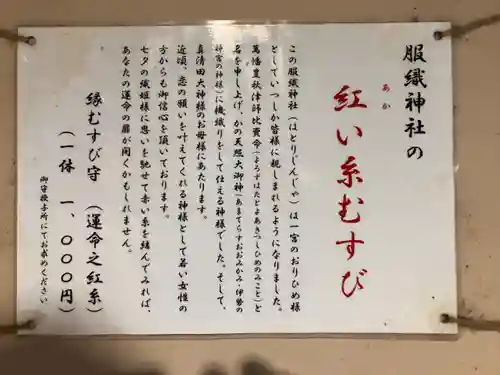 服織神社の
紅い糸むすび
あか
この服織神社（はとりじんじゃ）は一宮のおりひめ様
としていつしか皆様に親しまれるようになりました。
萬幡豊秋津師比賣命（よろずはたとよあきつしひめのみこと）と
名を申し上げ、かの天照大御神（あまてらすおおみかみ・伊勢の
神宮の神様）に機織りをして仕える神様でした。そして、
真清田大神様のお母様にあたります。
近頃、恋の願いを叶えてくれる神様として若い女性の
方からも御信心を頂いております。
七夕の織姫様に思いを馳せて赤い糸を結んでみれば、
あなたの運命の扉が開くかもしれません。
縁むすび守（運命之紅糸）
（一体　一、〇〇〇円）
御守授与所にてお求めください